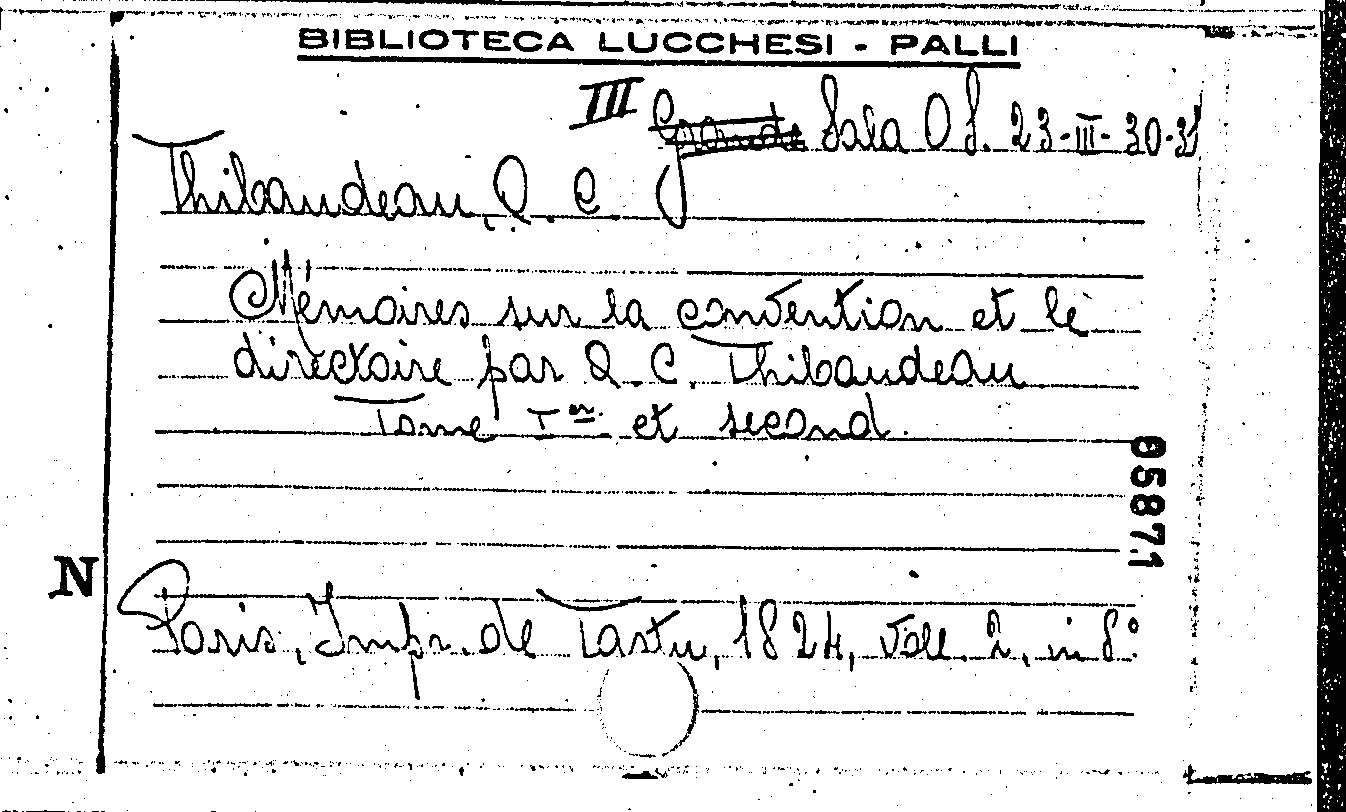 BIBLIOTECA LUCCHESI - PALLI
III Grande Sala Of. 23-III-30-31
Thibaudeau, A. C.
Mémoires sur la convention et le
directoire par A. C. Thibaudeau
Tome Ier. et second.
05871
N
Paris, Impr. de Tastu, 1824, voll. 2, in 8°